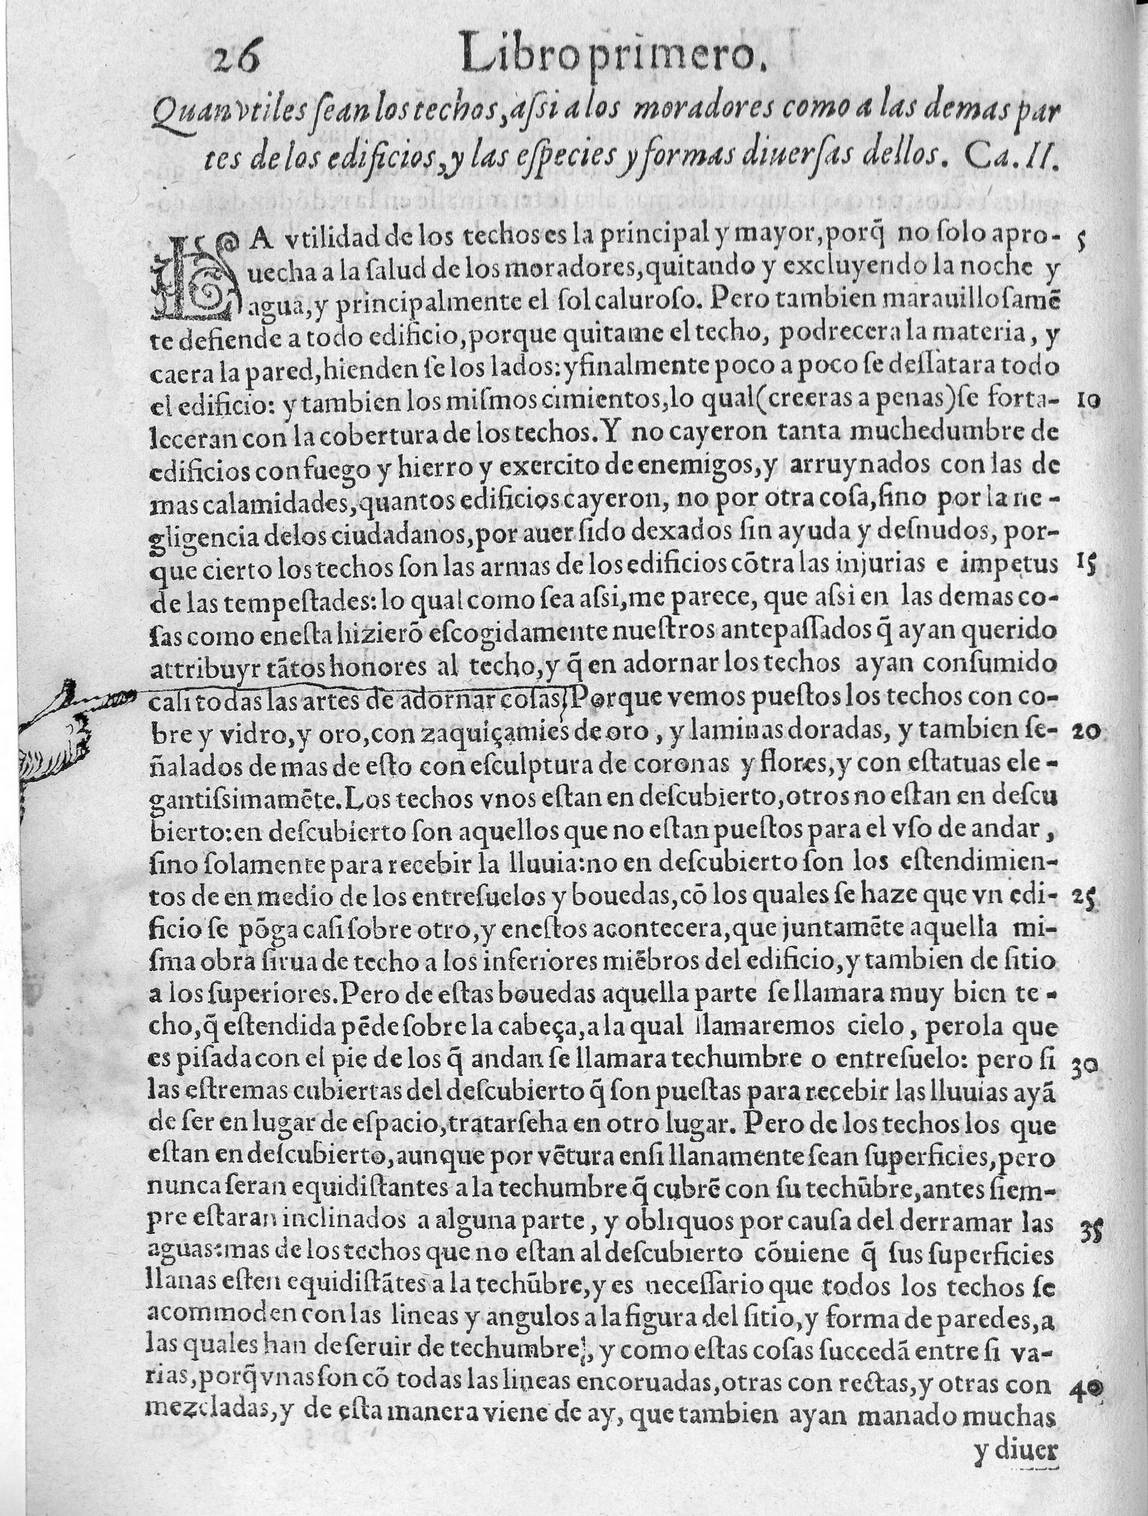 26 Libro primero.
Quan vtiles ſean los techos, aſsi a los moradores como a las demas par
tes de los edificios, y las eſpecies y formas diuerſas dellos. Ca. II.
LA vtilidad de los techos es la principal y mayor, porq̃ no ſolo apro- 5
uecha a la ſalud de los moradores, quitando y excluyendo la noche y
agua, y principalmente el ſol caluroſo. Pero tambien marauilloſamẽ
te defiende a todo edificio, porque quitame el techo, podrecera la materia, y
caera la pared, hienden ſe los lados: y finalmente poco a poco ſe deſſatara todo
el edificio: y tambien los miſmos cimientos, lo qual (creeras a penas) ſe forta- 10
leceran con la cobertura de los techos. Y no cayeron tanta muchedumbre de
edificios con fuego y hierro y exercito de enemigos, y arruynados con las de
mas calamidades, quantos edificios cayeron, no por otra coſa, ſino por la ne-
gligencia delos ciudadanos, por auer ſido dexados ſin ayuda y deſnudos, por-
que cierto los techos ſon las armas de los edificios cõtra las injurias e impetus 15
de las tempeſtades: lo qual como ſea aſsi, me parece, que aſsi en las demas co-
ſas como eneſta hizierõ eſcogidamente nueſtros antepaſſados q̃ ayan querido
attribuyr tãtos honores al techo, y q̃ en adornar los techos ayan conſumido
caſi todas las artes de adornar coſas, Porque vemos pueſtos los techos con co-
bre y vidro, y oro, con zaquiçamies de oro, y laminas doradas, y tambien ſe- 20
ñalados de mas de eſto con eſculptura de coronas y flores, y con eſtatuas ele-
gantiſsimamẽte. Los techos vnos eſtan en deſcubierto, otros no eſtan en deſcu
bierto: en deſcubierto ſon aquellos que no eſtan pueſtos para el vſo de andar,
ſino ſolamente para recebir la lluuia: no en deſcubierto ſon los eſtendimien-
tos de en medio de los entreſuelos y bouedas, cõ los quales ſe haze que vn edi- 25
ficio ſe põga caſi ſobre otro, y eneſtos acontecera, que juntamẽte aquella mi-
ſma obra ſirua de techo a los inferiores miẽbros del edificio, y tambien de ſitio
a los ſuperiores. Pero de eſtas bouedas aquella parte ſe llamara muy bien te-
cho, q̃ eſtendida pẽde ſobre la cabeça, a la qual llamaremos cielo, pero la que
es piſada con el pie de los q̃ andan ſe llamara techumbre o entreſuelo: pero ſi 30
las eſtremas cubiertas del deſcubierto q̃ ſon pueſtas para recebir las lluuias ayã
de ſer en lugar de eſpacio, tratarſeha en otro lugar. Pero de los techos los que
eſtan en deſcubierto, aunque por vẽtura enſi llanamente ſean ſuperficies, pero
nunca ſeran equidiſtantes a la techumbre q̃ cubrẽ con ſu techũbre, antes ſiem-
pre eſtaran inclinados a alguna parte, y obliquos por cauſa del derramar las 35
aguas: mas de los techos que no eſtan al deſcubierto cõuiene q̃ ſus ſuperficies
llanas eſten equidiſtãtes a la techũbre, y es neceſſario que todos los techos ſe
acommoden con las lineas y angulos a la figura del ſitio, y forma de paredes, a
las quales han de ſeruir de techumbre, y como eſtas coſas ſuccedã entre ſi va-
rias, porq̃ vnas ſon cõ todas las lineas encoruadas, otras con rectas, y otras con 40
mezcladas, y de eſta manera viene de ay, que tambien ayan manado muchas
y diuer